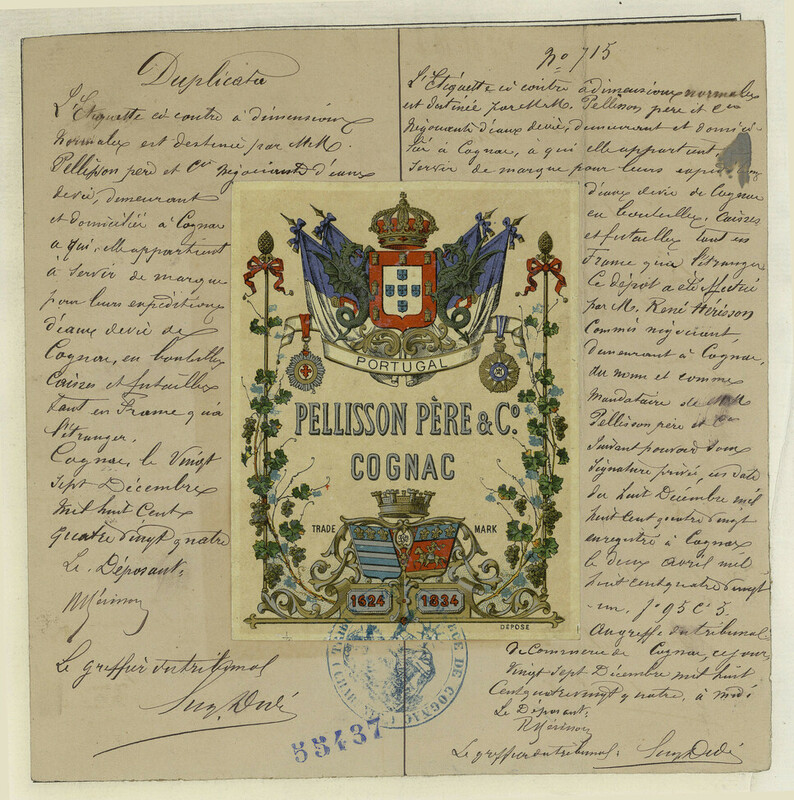 Duplicata
L'Etiquette ci contre à dimensions
normales est destinée par MM.
Pellisson père et Cie négociants d'eaux
devie, demeurant
et domiciliés à Cognac
a qui elle appartient
à servir de marque
pour leurs expeditions
d'eaux devie de
Cognac, en bouteilles
Caisses et futailles
tant en France qu'à
l'étranger.
Cognac, le Vingt
Sept Décembre
mil huit Cent
quatre vingt quatre
Le Déposant,
Le greffier du tribunal
No 715
L'Etiquette ci contre à dimensions normales
est destinée par MM. Pellisson père et Cie
Négociants d'eaux devie, demeurant et domici-
liés à Cognac, à qui elle appartient
servir de marque pour leurs
d'eaux devie de Cognac
en bouteilles, caisses
et futailles tant en
France qu'à l'étranger
Ce dépôt a été effectué
par M. René Hérisson
Commis négociant,
demeurant à Cognac,
au nom et comme
mandataire de MM
Pellisson père et Cie
Suivant pouvoir sous
signature privée, en date
du huit Décembre mil
huit cent quatre vingt
enregistré à Cognac
le deux avril mil
huit cent quatre vingt
un, fo 95 Co 5.
Au greffe du tribunal
de Commerce de Cognac, ce jour
Vingt Sept Décembre mil huit
Cent quatre vingt quatre, à midi
Le Déposant,
Le greffier du tribunal,
PORTUGAL
PELLISSON PÈRE & Co.
COGNAC
TRADE MARK
1624 1834
DÉPOSÉ
DE COGNAC
55437